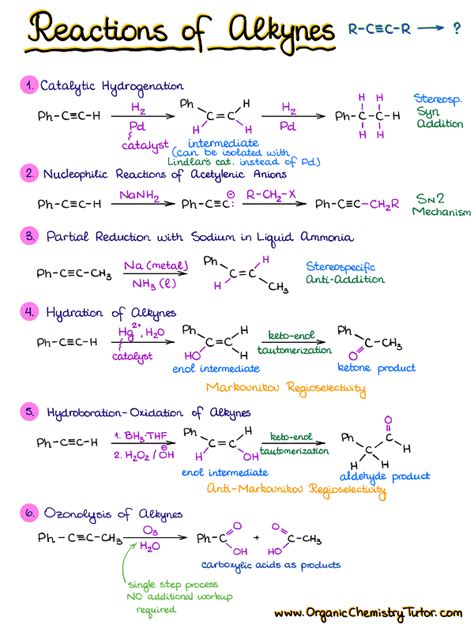 Reactions of Alkynes R-C≡C-R → ?
1. Catalytic Hydrogenation
Ph-C≡C-H H2 Pd catalyst Ph H C=C H H intermediate (can be isolated with Lindlar's cat. instead of Pd) H2 Pd H H Ph-C-C-H H H Stereosp. Syn Addition
2. Nucleophilic Reactions of Acetylenic Anions
Ph-C≡C-H NaNH2 Ph-C≡C:⊖ R-CH2-X Ph-C≡C-CH2R SN2 Mechanism
3. Partial Reduction with Sodium in Liquid Ammonia
Ph-C≡C-CH3 Na (metal) NH3 (l) Ph H C=C H CH3 Stereospecific Anti-Addition
4. Hydration of Alkynes
Ph-C≡C-H Hg2+, H2O catalyst Ph H C=C HO H enol intermediate keto-enol tautomerization Ph C-CH3 O ketone product
Markovnikov Regioselectivity
5. Hydroboration-Oxidation of Alkynes
Ph-C≡C-H 1. BH3·THF 2. H2O2/OH⊖ Ph H C=C H OH enol intermediate keto-enol tautomerization Ph O C C H H H aldehyde product
Anti-Markovnikov Regioselectivity
6. Ozonolysis of Alkynes
Ph-C≡C-CH3 O3 H2O Ph-C O OH + O C-CH3 HO
carboxylic acids as products
single step process
NO additional workup
required
www.OrganicChemistryTutor.com